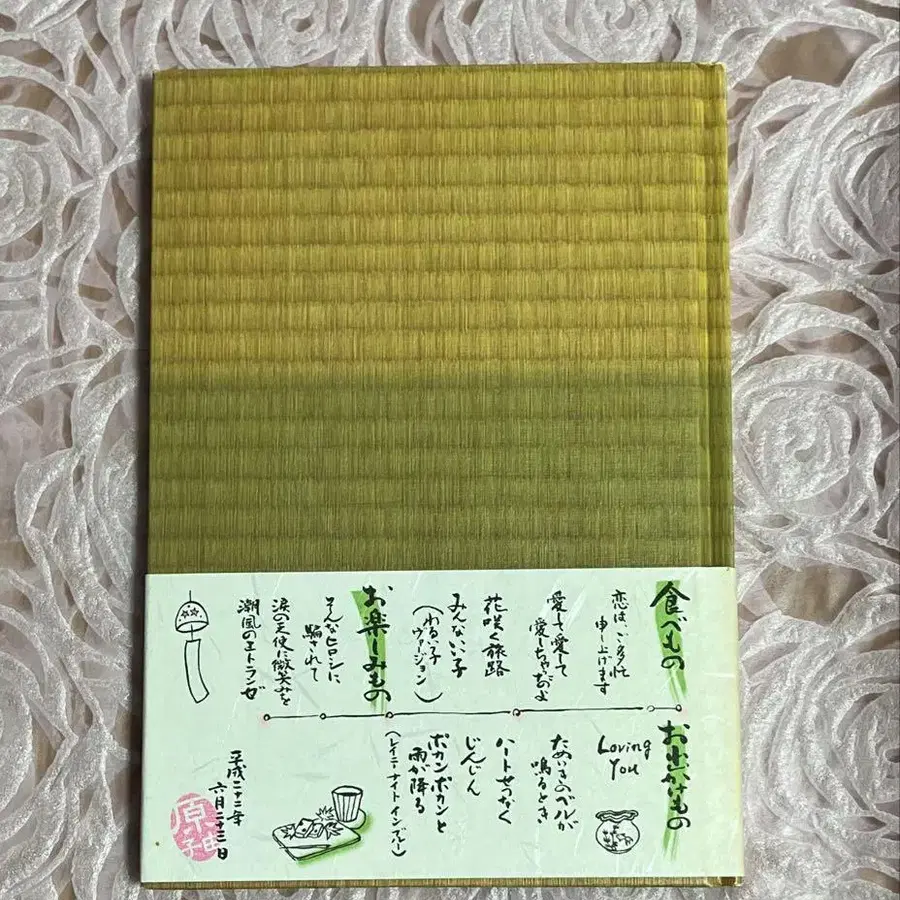 食べもの
恋は、ご多忙
申し上げます
愛して愛して
愛しちゃったのよ
花咲く旅路
みんないい子
(わるい子
ヴァージョン)
お楽しみもの
そんなヒロシに
騙されて
涙の天使に微笑みを
潮風のエトランゼ
お出かけもの
Loving
You
ためいきのベルが
鳴るとき
ハートせつなく
じんじん
ポカンポカンと
雨が降る
(レイニーナイト イン ブルー)
平成二十二年
六月二十三日
原由子